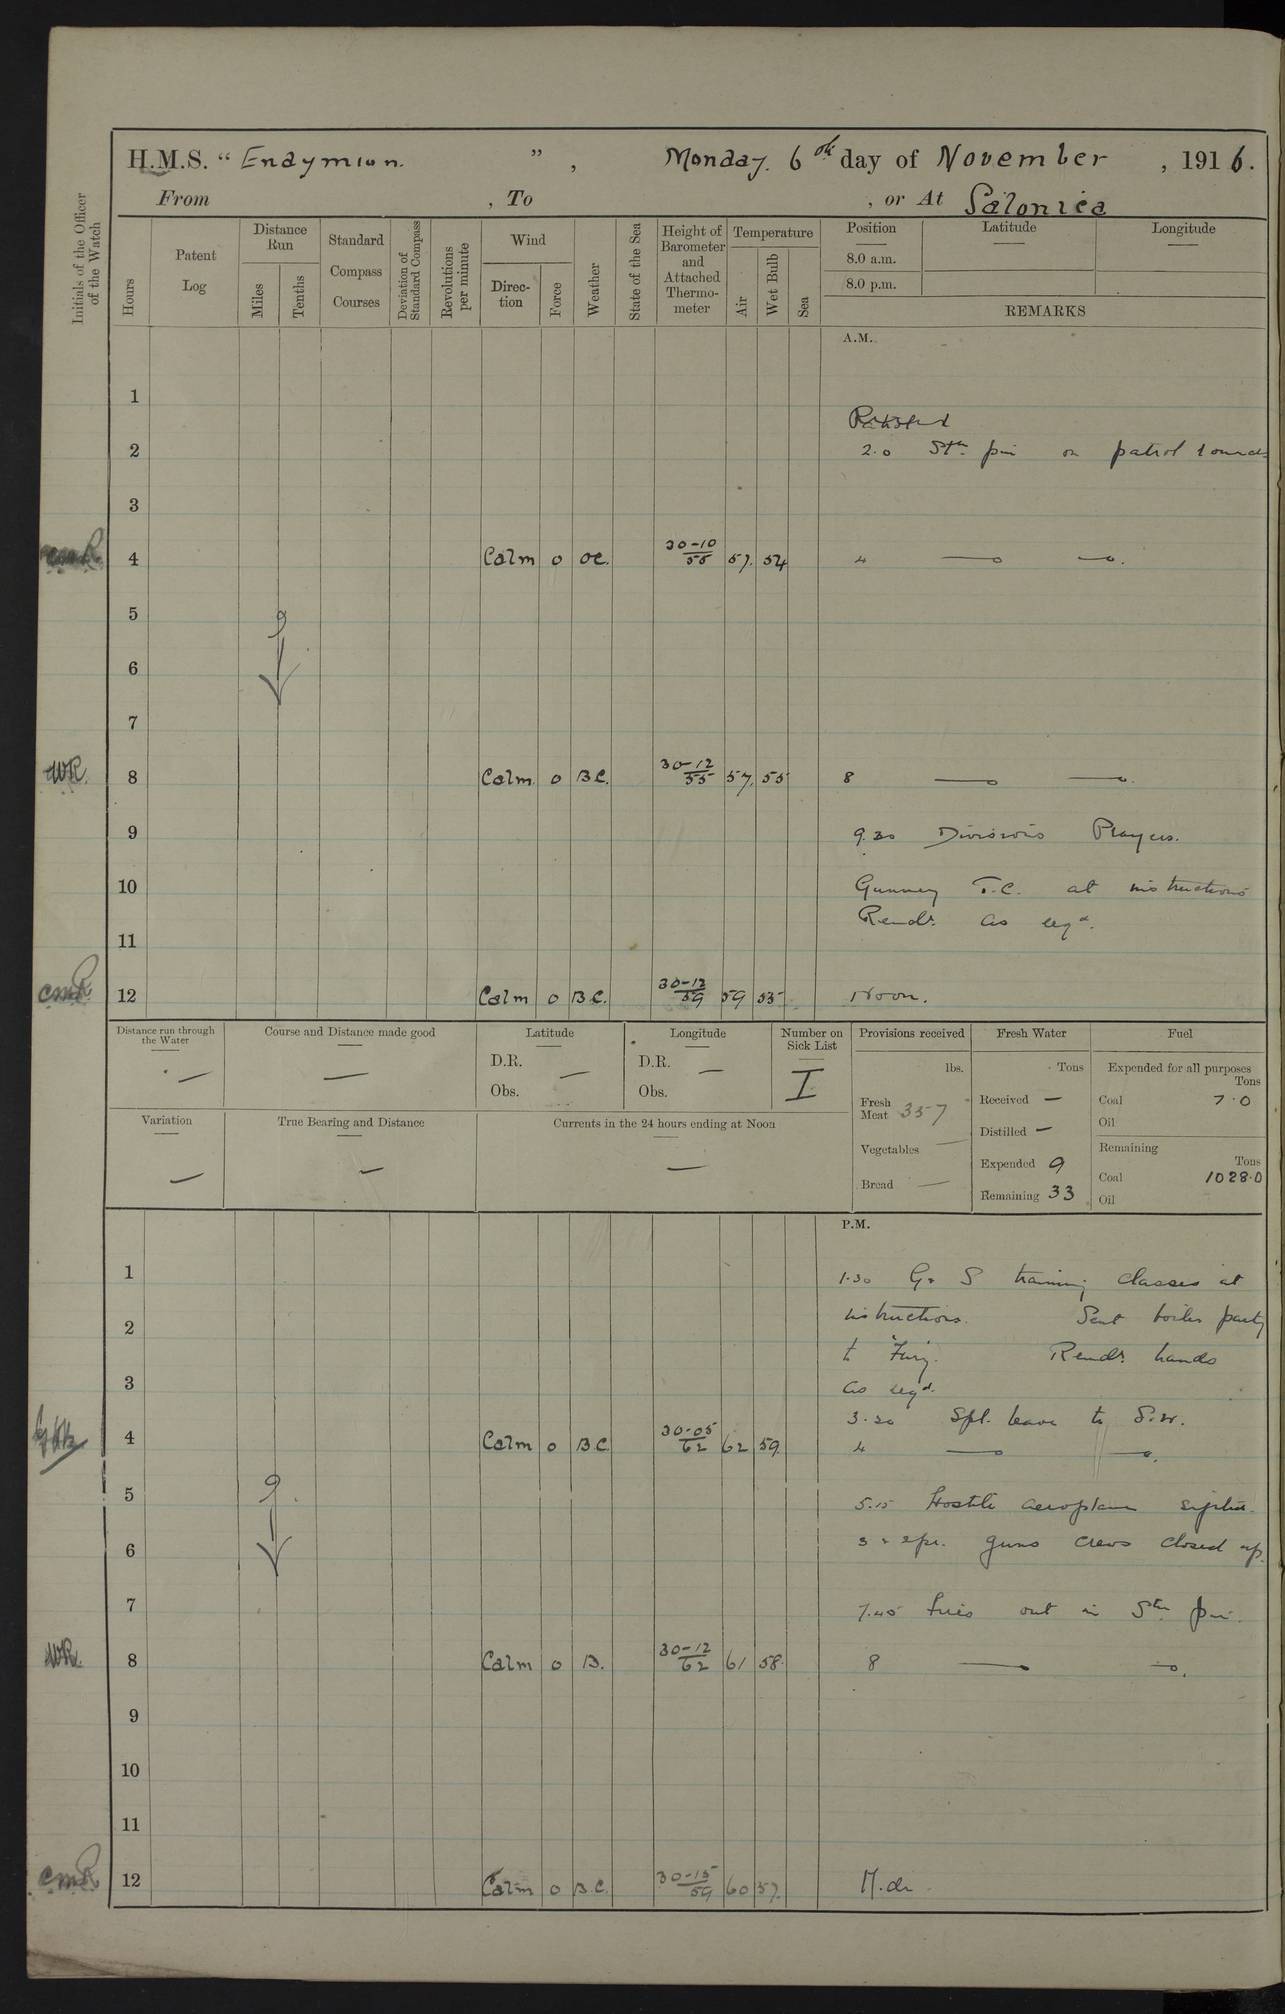 H.M.S. “ Endymion. ” , Monday. 6th day of November , 1916.
From , To , or At Salonica
Initials of the Officer of the Watch
Hours
Patent Log
Distance Run
Miles
Tenths
Standard Compass Courses
Deviation of Standard Compass
Revolutions per minute
Wind
Direc-tion
Force
Weather
State of the Sea
Height of Barometer and Attached Thermo-meter
Temperature
Air
Wet Bulb
Sea
Position Latitude Longitude
8.0 a.m.
8.0 p.m.
REMARKS
A.M.
1
2 2.0 Stbn on patrol
3
cmR 4 Calm 0 OC. 30-10 55 57. 54 4 —o —o.
5 9
6
7
WR. 8 Calm. 0 BC. 30-12 55 57. 55 8 —o —o.
9 9.30 Divisions Prayers.
10 Gunnery T.C. at instructions
Remdr. as reqd.
11
cmR. 12 Calm 0 B.C. 30-12 59 59 55 Noon.
Distance run through the Water
—
Course and Distance made good
—
Latitude
D.R.
Obs.
—
Longitude
D.R.
Obs.
—
Number on Sick List
I
Provisions received
lbs.
Fresh Meat 357
Vegetables —
Bread —
Fresh Water
Tons
Received —
Distilled —
Expended 9
Remaining 33
Fuel
Expended for all purposes
Tons
Coal 7.0
Oil
Remaining
Tons
Coal 1028.0
Oil
Variation
—
True Bearing and Distance
—
Currents in the 24 hours ending at Noon
—
P.M.
1 1.30 G & S training classes at
2 instructions. Sent boiler party
to Remdr. hands
3 as reqd.
3.30 Spl. leave to
4 Calm 0 B.C. 30-05 62 62 59. 4 —o —o.
5 9 5.15 Hostile aeroplane sighted.
6 3 & guns crews closed up.
7 7.45 Fires out in
WR. 8 Calm 0 B. 30-12 62 61 58. 8 —o —o.
9
10
11
cmR 12 Calm 0 B.C. 30-15 59 60 57. M.dn.